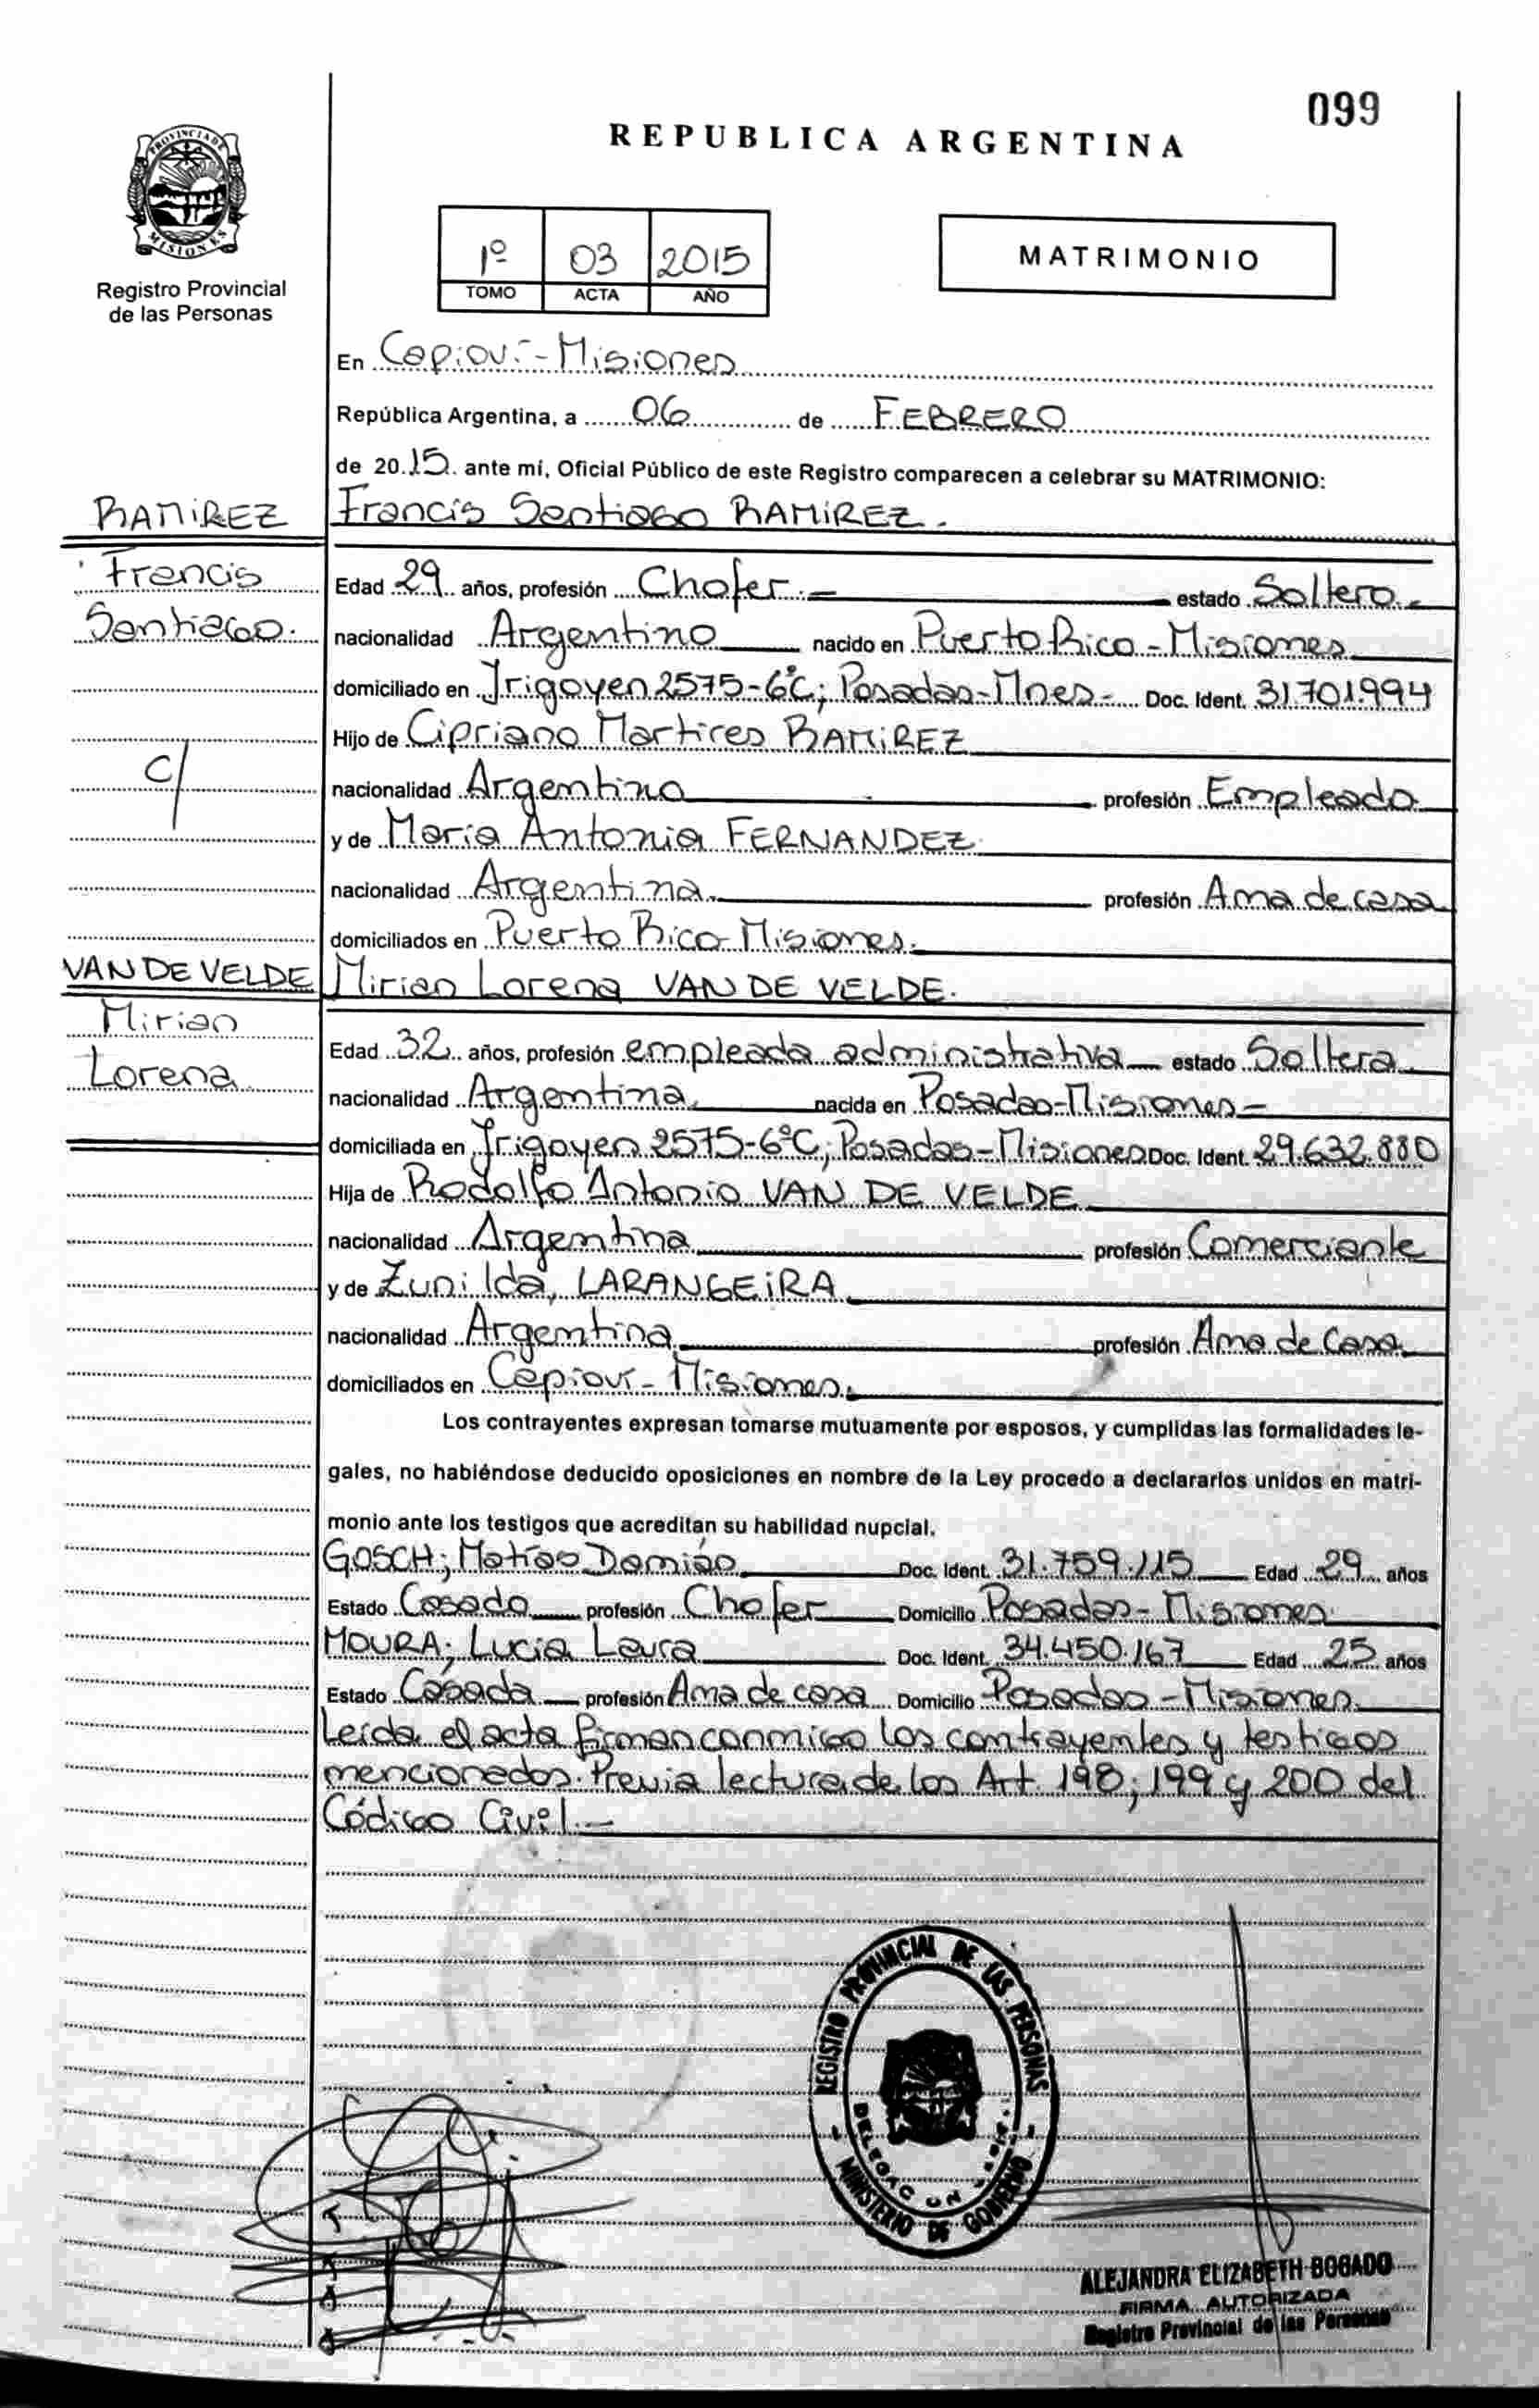 099
REPUBLICA ARGENTINA
PROVINCIA DE
MISIONES
Registro Provincial
de las Personas
1º 03 2015
TOMO ACTA AÑO
MATRIMONIO
En Capioví-Misiones
República Argentina, a 06 de FEBRERO
de 2015 ante mí, Oficial Público de este Registro comparecen a celebrar su MATRIMONIO:
RAMIREZ
Francis Santiago RAMIREZ.
Francis
Santiago.
Edad 29 años, profesión Chofer.- estado Soltero.-
nacionalidad Argentino nacido en Puerto Rico - Misiones
domiciliado en Irigoyen 2575-6ºC; Posadas-Mnes- Doc. Ident. 31.701.994
Hijo de Cipriano Martires RAMIREZ
C/
nacionalidad Argentino profesión Empleado
y de Maria Antonia FERNANDEZ.
nacionalidad Argentina. profesión Ama de casa
domiciliados en Puerto Rico-Misiones.
VAN DE VELDE
Mirian Lorena VAN DE VELDE.
Mirian
Lorena
Edad 32 años, profesión empleada administrativa estado Soltera
nacionalidad Argentina, nacida en Posadas-Misiones-
domiciliada en Irigoyen 2575-6ºC; Posadas-Misiones Doc. Ident. 29.632.880
Hija de Rodolfo Antonio VAN DE VELDE
nacionalidad Argentina profesión Comerciante
y de Zunilda, LARANGEIRA
nacionalidad Argentina profesión Ama de Casa
domiciliados en Capioví - Misiones.
Los contrayentes expresan tomarse mutuamente por esposos, y cumplidas las formalidades le-
gales, no habiéndose deducido oposiciones en nombre de la Ley procedo a declararlos unidos en matri-
monio ante los testigos que acreditan su habilidad nupcial.
GOSCH; Matías Damián Doc. Ident. 31.759.115 Edad 29 años
Estado Casado profesión Chofer Domicilio Posadas- Misiones
MOURA; Lucia Laura Doc. Ident. 34.450.167 Edad 25 años
Estado Casada profesión Ama de casa Domicilio Posadas - Misiones.
Leída el acta firman conmigo los contrayentes y testigos
mencionados. Previa lectura de los Art. 198; 199 y 200 del
Código Civil.-
REGISTRO PROVINCIAL DE LAS PERSONAS
MINISTERIO DE GOBIERNO
ALEJANDRA ELIZABETH BOGADO
FIRMA AUTORIZADA
Registro Provincial de las Personas